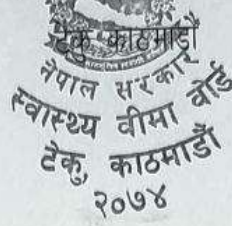 टेकु काठमाडौं
नेपाल सरकार
स्वास्थ्य वीमा वोर्ड
टेकु, काठमाडौं
२०७४